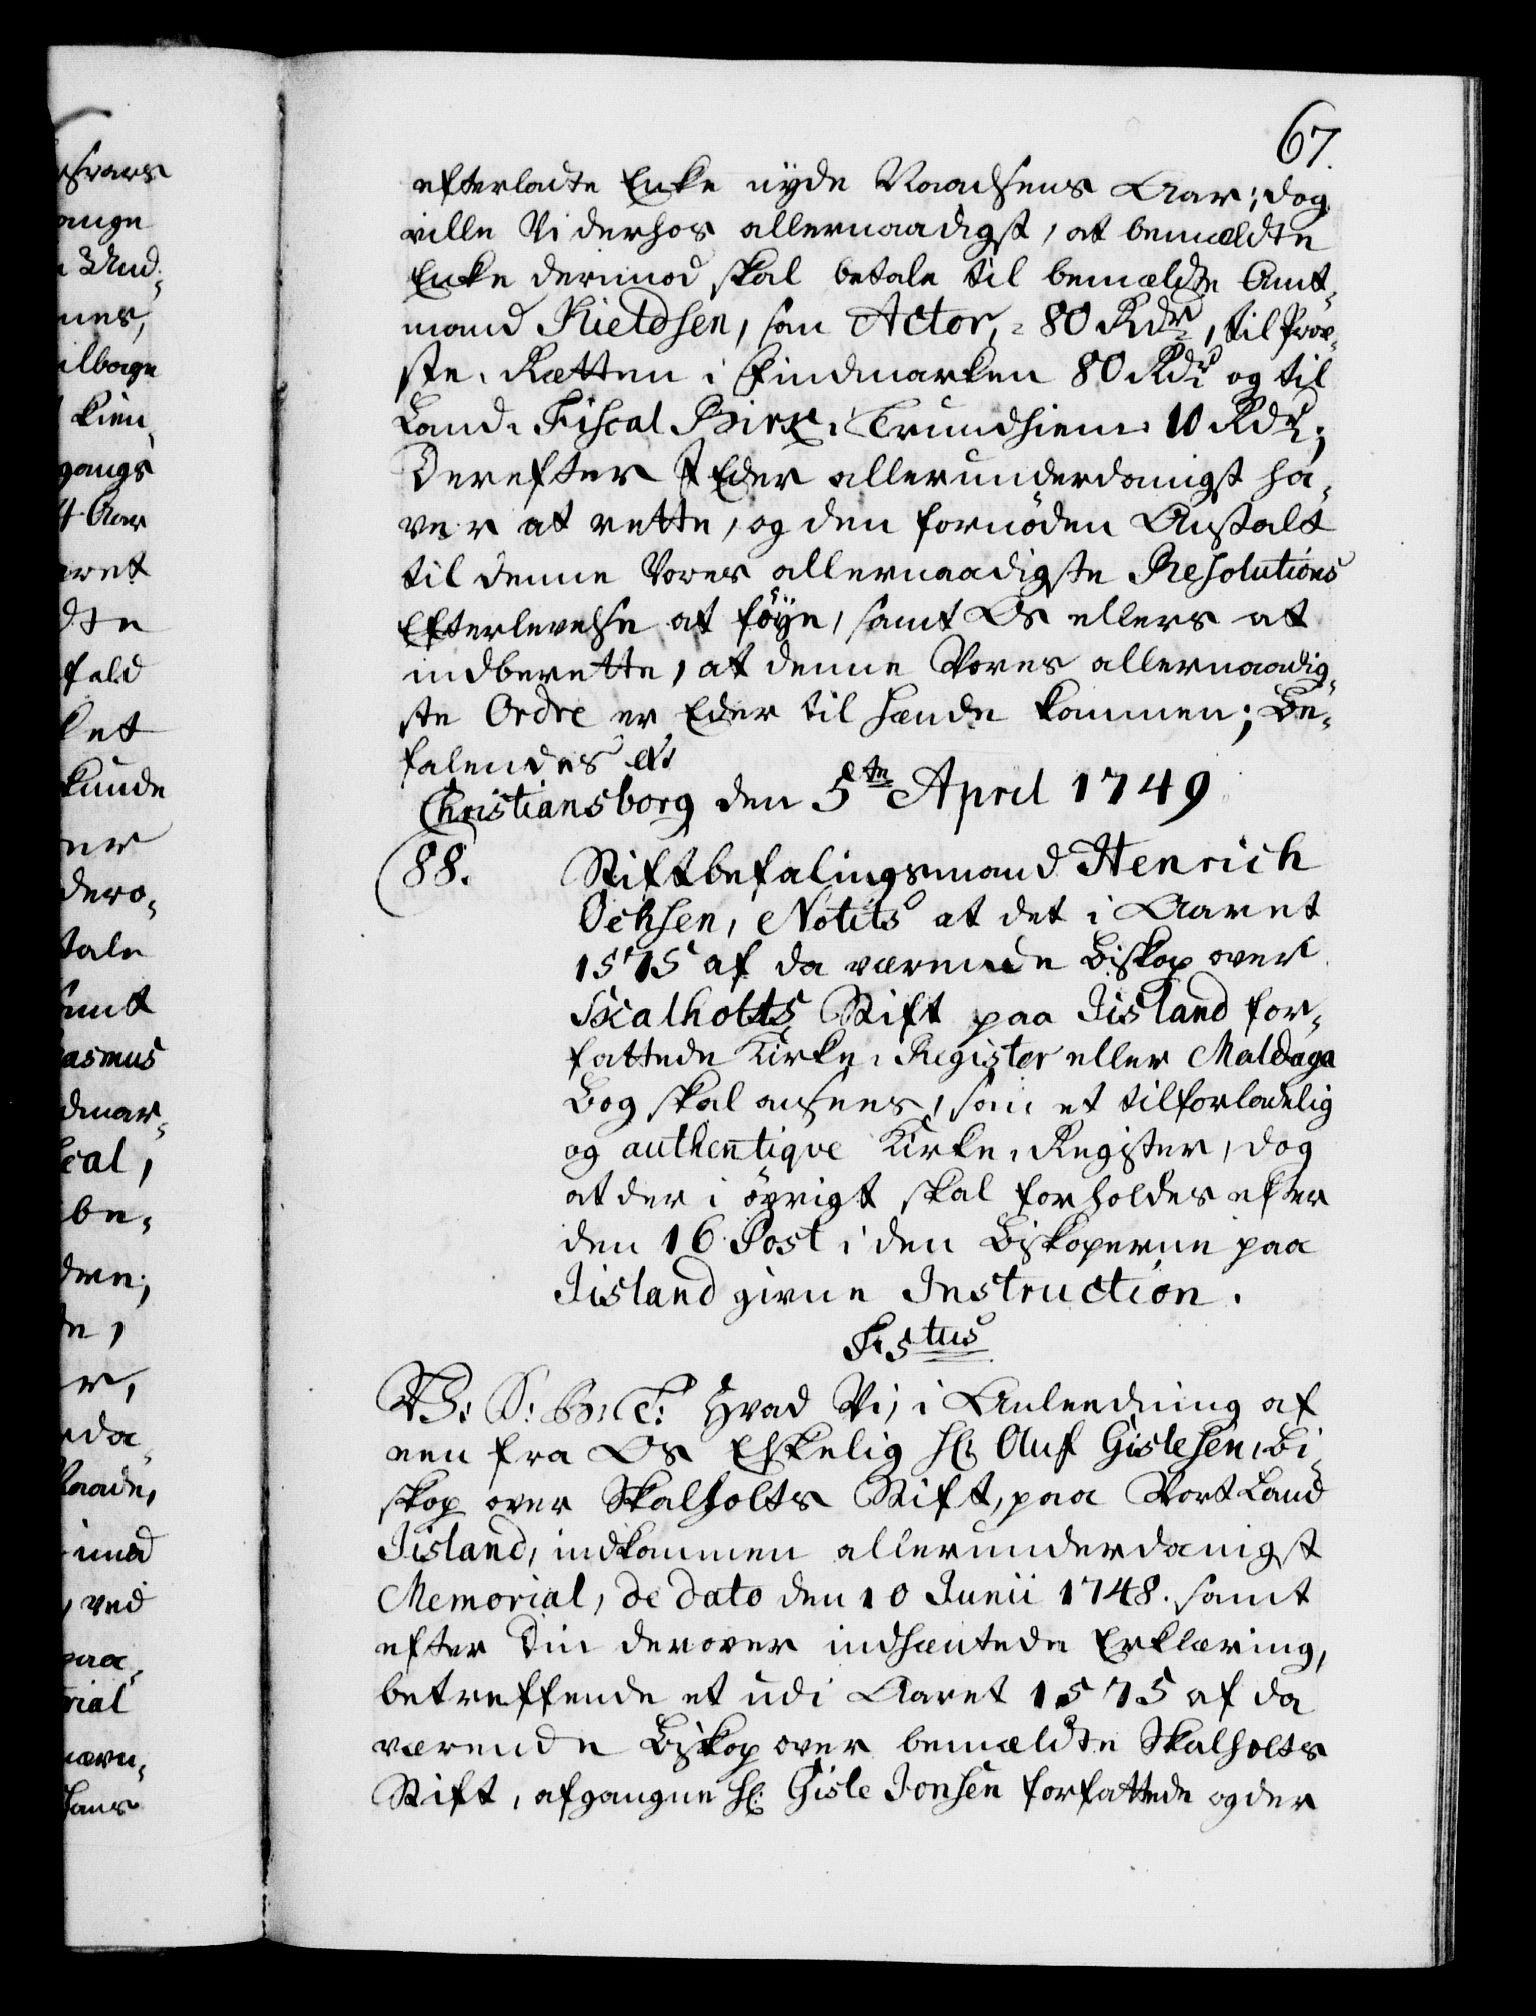 67.
efterladte Enke nyde Naadsens Aar; dog
ville Vi derhos allernaadigst, at bemældte
Enke derimod skal betale til bemældte Amt-
mand Kieldsen, som Actor, 80 Rdr, til Prov-
ste-Rætten i Findmarken 80 Rdr og til
Land-Fiscal Birx i Trundhiem 10 Rdr;
Derefter I Eder allerunderdanigst ha-
ver at rette, og den fornöden Anstalt
til denne Vores allernaadigste Resolutions
Efterlevelse at föye, samt Os ellers at
indberette, at denne Vores allernaadig-
ste Ordre er Eder til Hænde kommen; Be-
falendes etc
Christiansborg den 5te April 1749
88. Stiftbefalingsmand Henrich
Ochsen, Notits at det i Aaret
1575 af da værende Biskop over
Skalholts Stift paa Jisland for-
fattede Kirke-Register eller Maldaga
Bog skal ansees, som et tilforladelig
og authentiqve Kirke-Register, dog
at der i övrigt skal forholdes efter
den 16 Post i den Biskoperne paa
Jisland givne Instruction.
F. 5tus
V: S: G: T: Hvad Vi, i Anleedning af
een fra Os Elskelig Hr. Oluf Gislesen, Bi-
skop over Skalholts Stift, paa Vort Land
Jisland, indkommen allerunderdanigst
Memorial, de dato den 10 Junii 1748. samt
efter Din derover indhæntede Erklæring,
betreffende et udi Aaret 1575 af da
værende Biskop over bemældte Skalholts
Stift, afgangne Hr. Gisle Jonsen forfattede og der